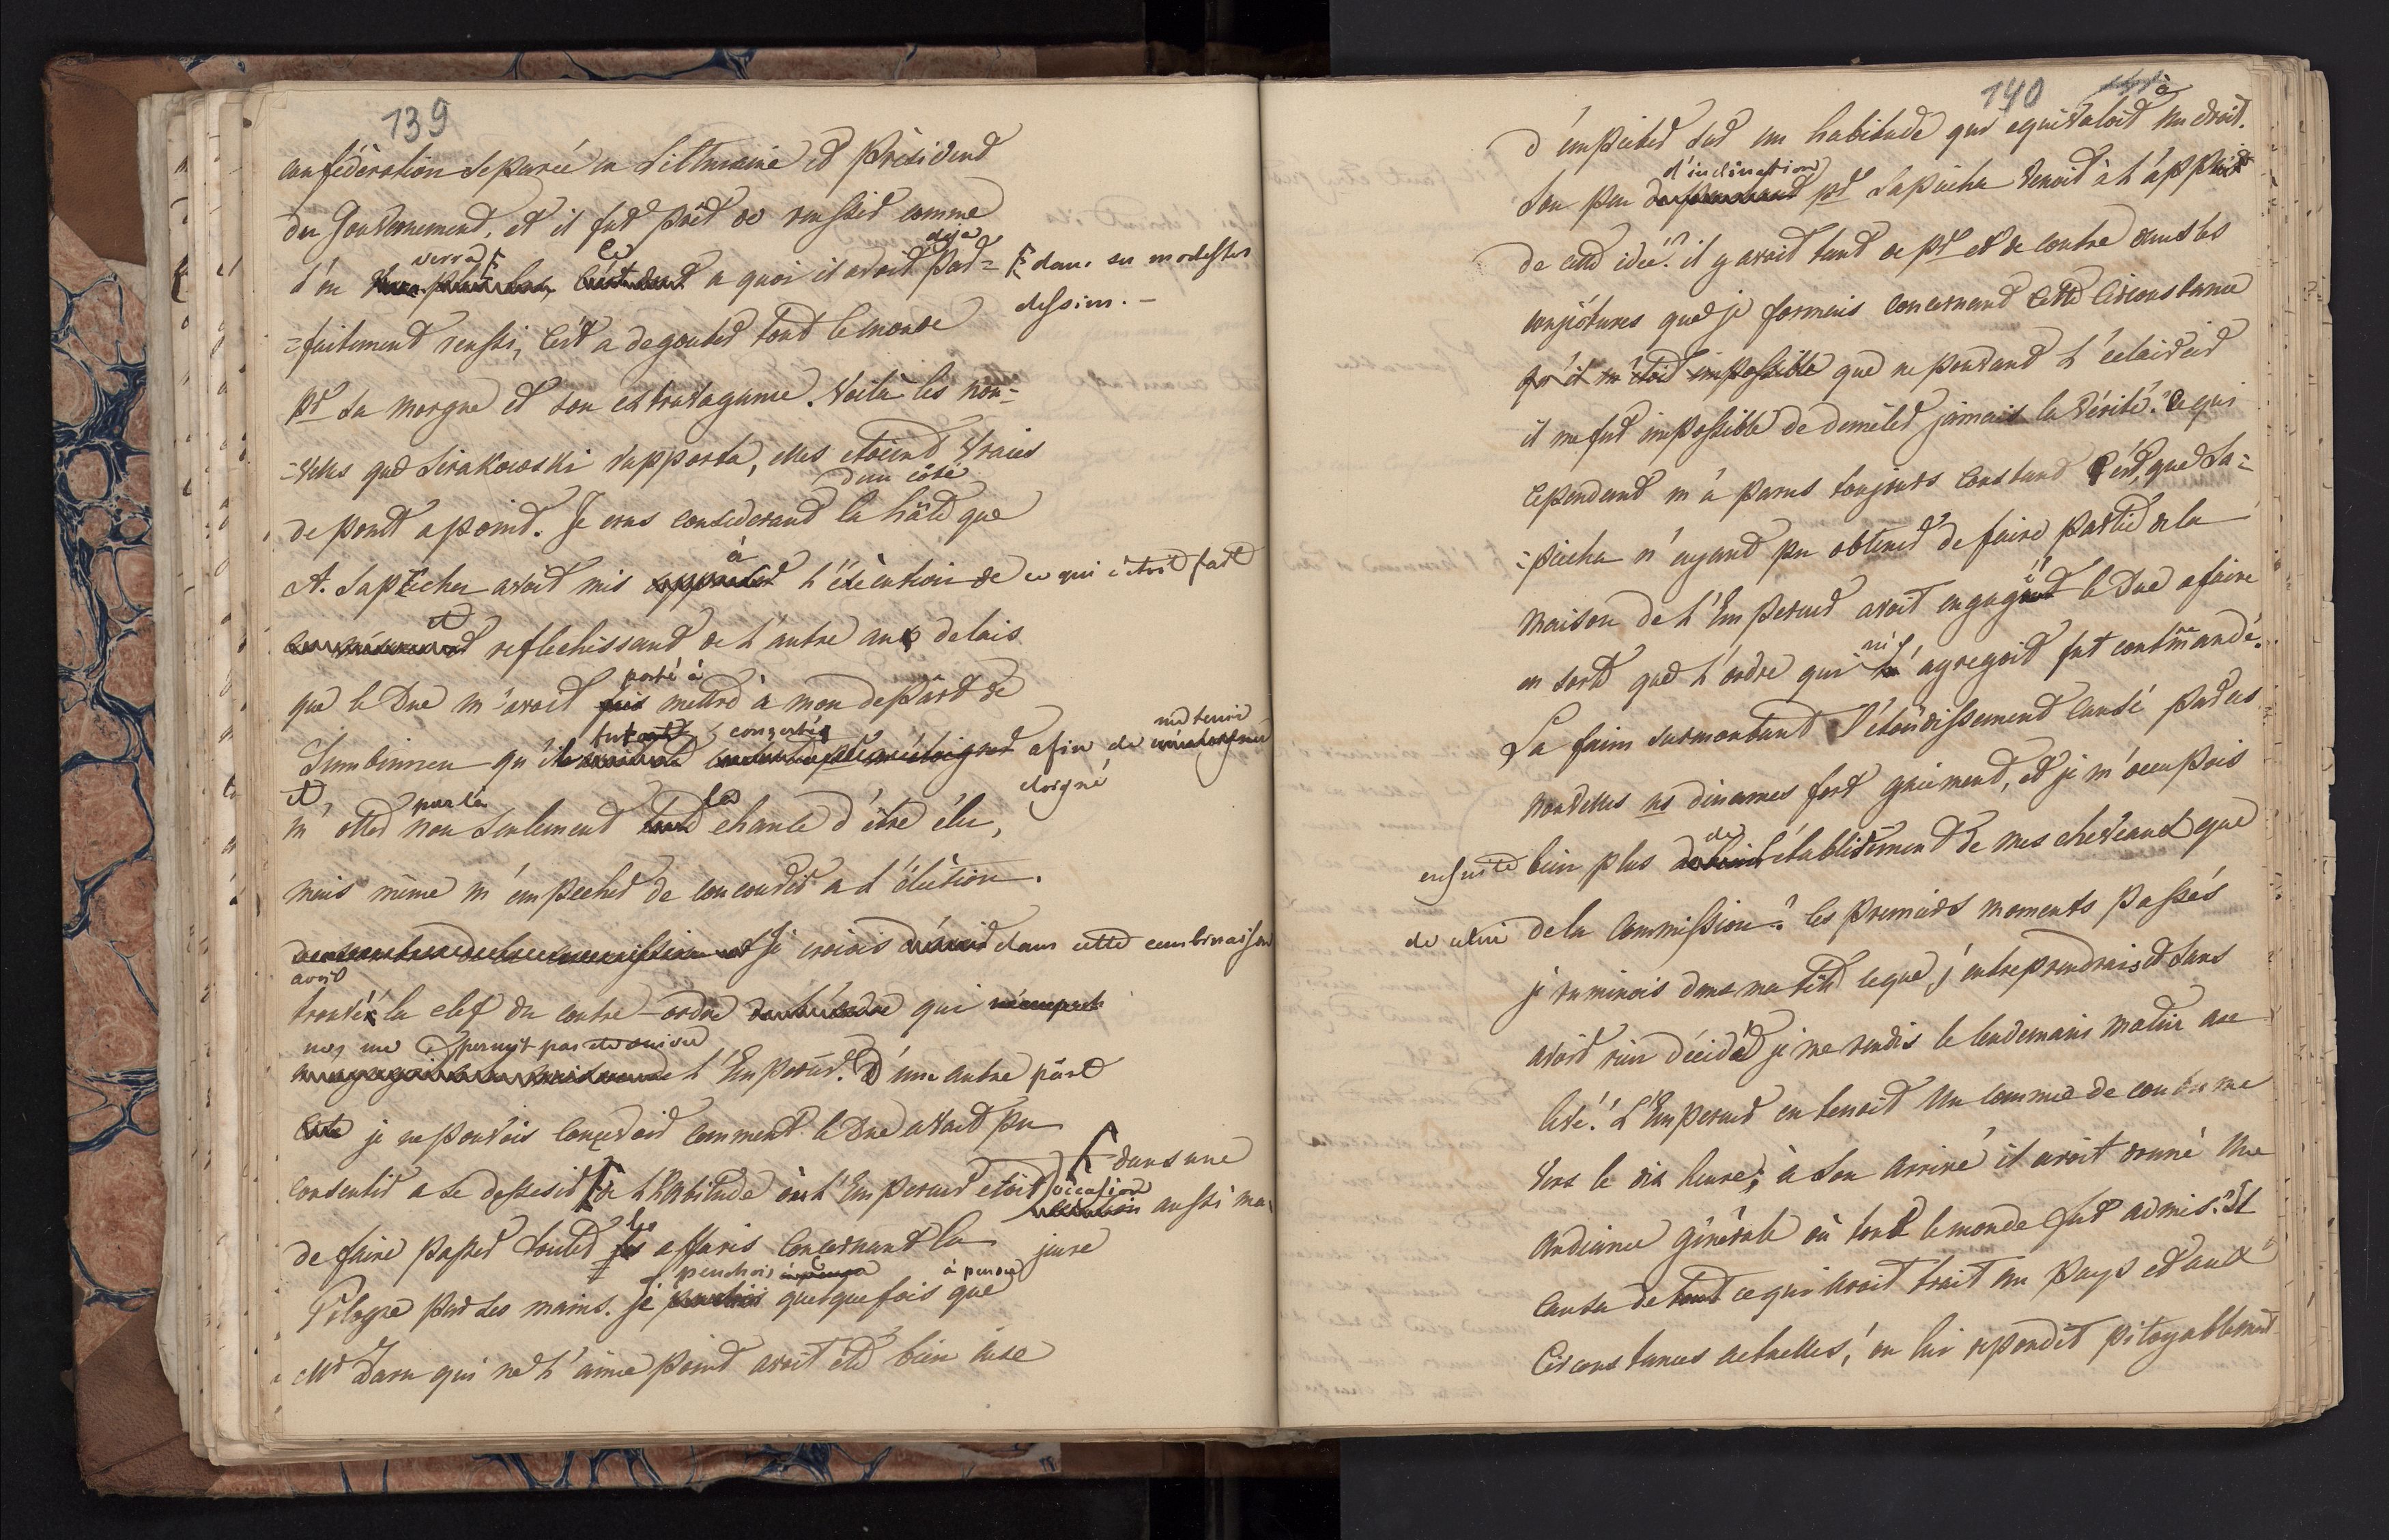 139
confédération separée en Litthuanie et Président
du Gouvernement, et il fut prêt de reussir comme
l'on verra Ce a quoi il avoit deja par= dans ses modestes
dessins. —
=faitement reussi, c'est a degouter tout le monde
pr sa morgue et son extravagance. Voilà les nou=
=velles que Sirakowski rapporta, elles etoient vraies
de point a point. Je crus considerant d'un côté la hâte que
A. Sapieha avoit mis à l'éxécution de ce qui etoit fait
et reflechissant de l'autre aux delais
que le Duc m'avoit porté à mettre à mon depart de
Gumbinnen qu'il concerté afin de me tenir
eloigné
et m'otter par là non seulement la chance d'être élu,
mais même m'empecher de concourir a l'élection.
Je croiois dans cette combinaison
avoir trouvé la clef du contre-ordre qui
ne me permit pas de suivre
l'Empereur. D'une autre part
je ne pouvois concevoir comment le Duc avoit pu
consentir a se dessesir dans une
occasion aussi ma-
jeure
de l'habitude où l'Empereur etoit
de faire passer toutes les affaires concernant la
Pologne par ses mains. Je penchois quelque fois à penser que
Mr Daru qui ne l'aime point avoit été bien aise
140
d'empieter sur un habitude qui equivaloit à un droit.
Son peu d'inclination pr Sapieha venoit à l'appui
de cette idée. il y avoit tant de pr et de contre dans les
conjectures que je formais concernant cette circonstance
qu'il m'étoit impossible que ne pouvant l'éclaircir
il me fut impossible de demêler jamais la vérité. Ce qui
cependant m'a parus toujours constant c'est, que Sa=
=pieha n'ayant pu obtenir de faire partie de la
Maison de l'Empereur avoit engagé le Duc a faire
en sorte que l'ordre qui m'y agregoit fut contremandé.
La faim surmontant l'étourdissement causé par ces
nouvelles ns dinames fort gaiement, et je m'occupois
ensuite bien plus de établissement de mes chevaux que
de celui de la Commission. Les premiers moments passés
je ruminois dans ma tête ce que j'entreprendrais et sans
avoir rien décidé je me rendis le lendemain matin au
levé. L'Empereur en tenoit un comme de coutume
vers le dix heure; à son arrivé il avoit donné une
Audience générale où tout le monde fut admis. Il
causa de tout ce qui avoit trait au pays et aux
circonstances actuelles, on lui repondit pitoyablement